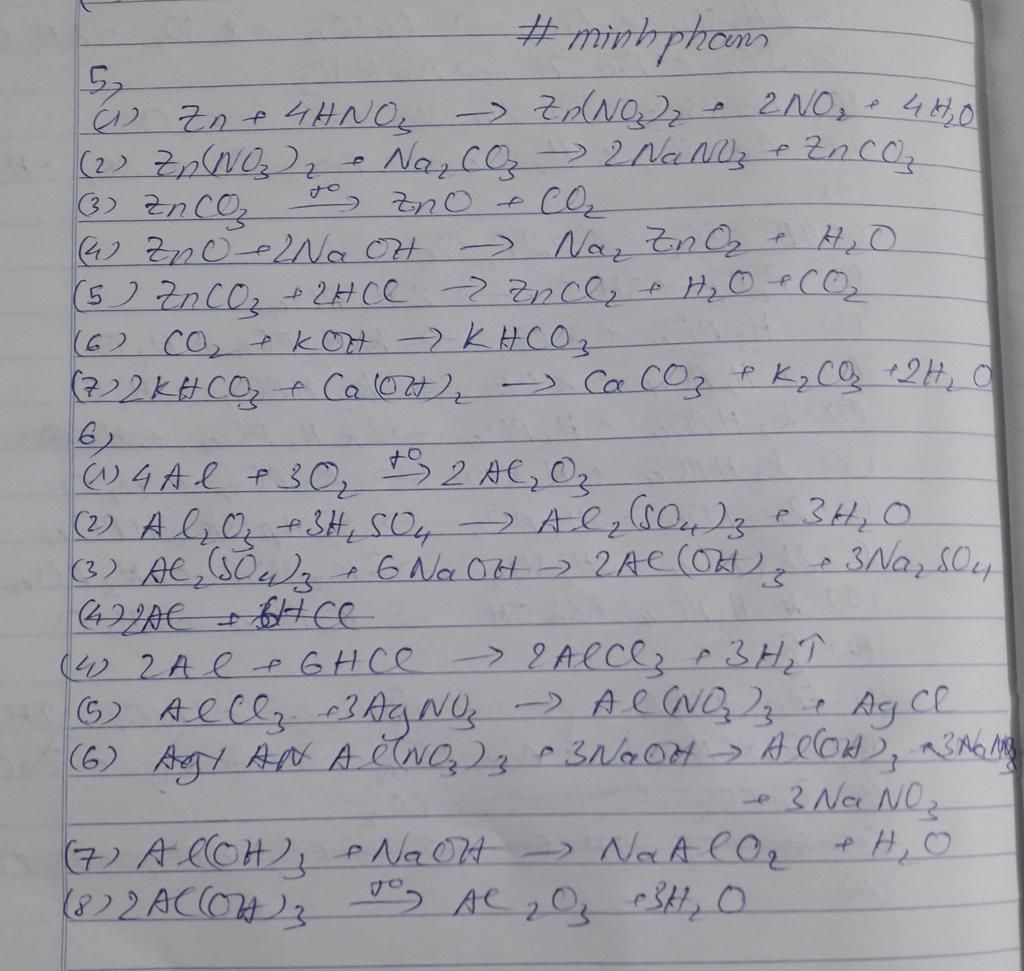 # minhpham
5,
(1) Zn + 4HNO3 → Zn(NO3)2 + 2NO2 + 4H2O
(2) Zn(NO3)2 + Na2CO3 → 2NaNO3 + ZnCO3
(3) ZnCO3 t° → ZnO + CO2
(4) ZnO + 2NaOH → Na2ZnO2 + H2O
(5) ZnCO3 + 2HCl → ZnCl2 + H2O + CO2
(6) CO2 + KOH → KHCO3
(7) 2KHCO3 + Ca(OH)2 → CaCO3 + K2CO3 + 2H2O
6,
(1) 4Al + 3O2 t° → 2Al2O3
(2) Al2O3 + 3H2SO4 → Al2(SO4)3 + 3H2O
(3) Al2(SO4)3 + 6NaOH → 2Al(OH)3 + 3Na2SO4
(4) 2Al + 6HCl
(4) 2Al + 6HCl → 2AlCl3 + 3H2↑
(5) AlCl3 + 3AgNO3 → Al(NO3)3 + AgCl
(6) Al(NO3)3 + 3NaOH → Al(OH)3 + 3NaNO3
+ 3NaNO3
(7) Al(OH)3 + NaOH → NaAlO2 + H2O
(8) 2Al(OH)3 t° → Al2O3 + 3H2O